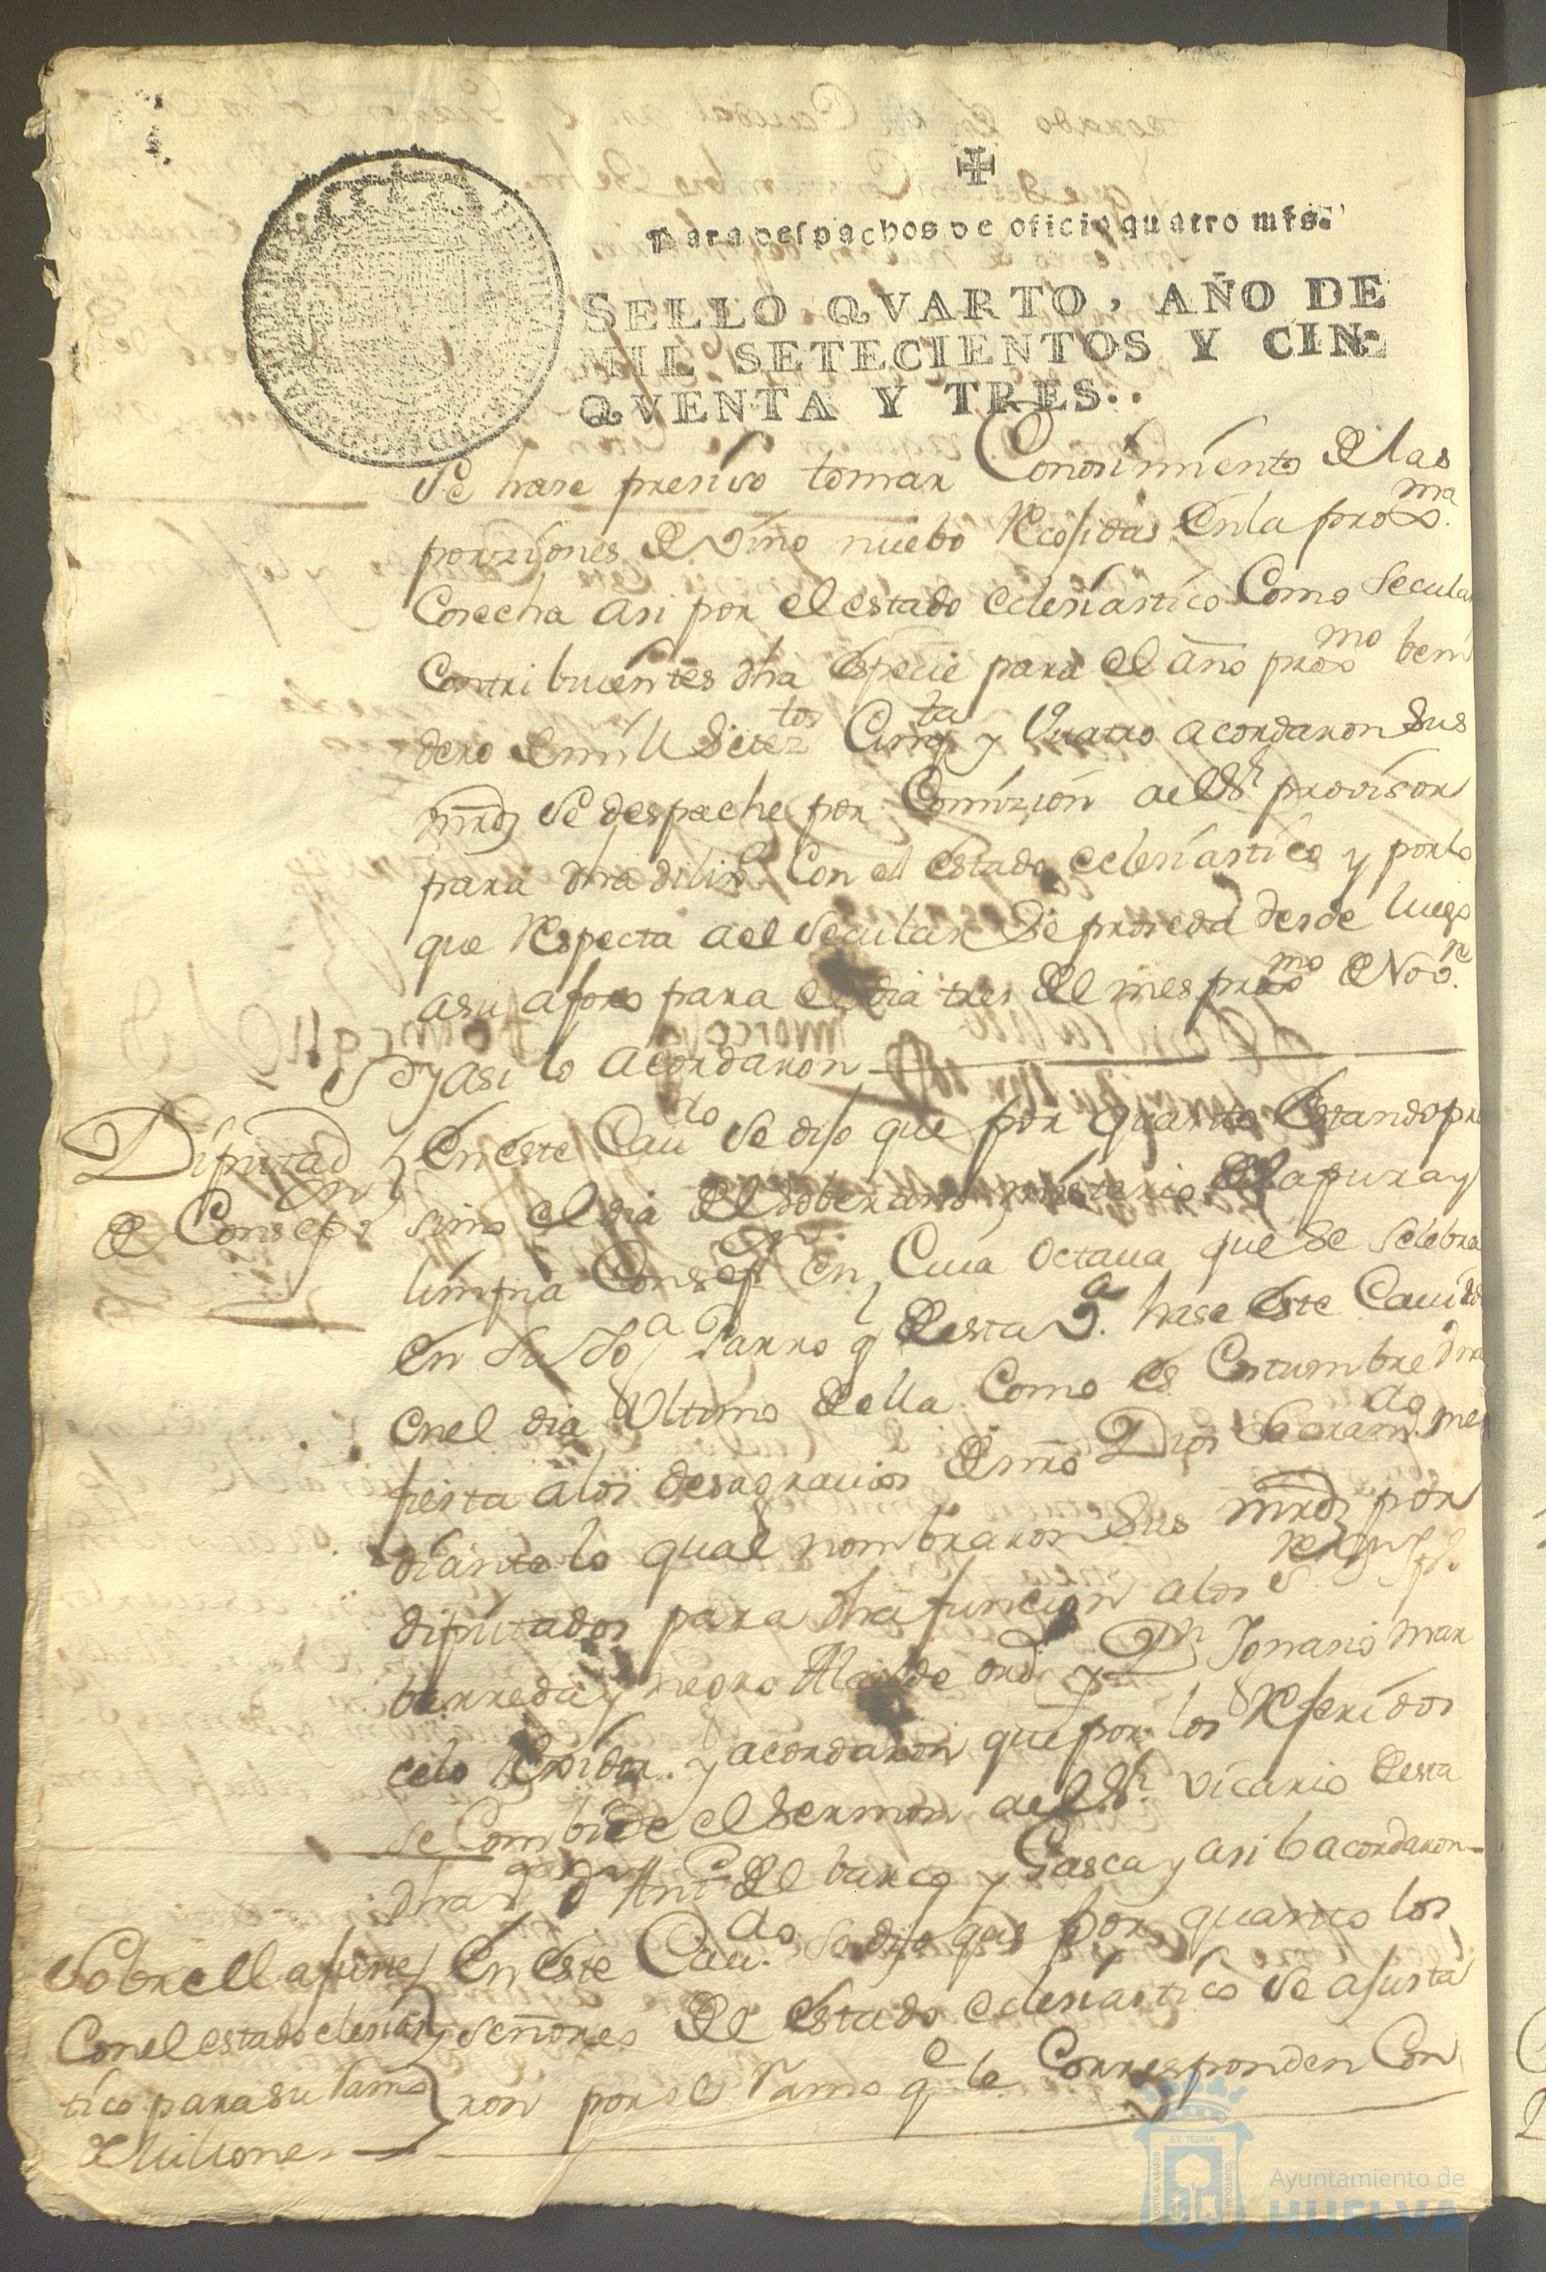 Para despachos de oficio quatro mrs.
SELLO QVARTO, AÑO DE
MIL SETECIENTOS Y CIN-
QVENTA Y TRES..
Se hase presiso tomar Conosimiento de las
porsiones de vino nuebo Recojidas en la proxma.
Cosecha asi por el estado eclesiastico Como Secular
Contribuientes dha espeçie para el año proxmo beni
dero de mill Seteztos Cinqta y Quatro acordaron Sus
mrds Se despache por Comizion a el Sr provisor
para dha dilixa Con el estado eclesiastico y por lo
que Respecta a el Secular Se proseda desde luego
a su aforo para el dia tres del mes proxmo de Nove.
y asi lo acordaron
Diputads
de Consepn
En este Caudo Se dijo que por quanto Estando pro
simo el dia del soberano misterio de la pura y
limpia Consepn En Cuia Octaua que Se Selebra
En Su Yga Parroql desta Va. hase Este Cauildo
en el dia Ultimo de ella Como es Costumbre dha
fiesta a los desagrauios de nro Dios Sacramdo me
diante lo qual nombraron Sus mrds por
diputados para dha funcion a los Sres Dn Jph.
barreda y negro Alcalde ordo y Dn Ygnasio mar
celo Rexidor y acordaron que por los Referidos
Se Combide el Sermon a el Sr. vicario desta
dha Va Dn Anto del barco y Gasca y asi lo acordaron
Sobre el ajuste
Con el estado elesias
tico para su Ramo
de Millones
En este Caudo. Se dijo que por quanto los
Señores del Estado eclesiastico Se ajusta
ron por el Ramo qe le Corresponden Con
Ayuntamiento de
HUELVA